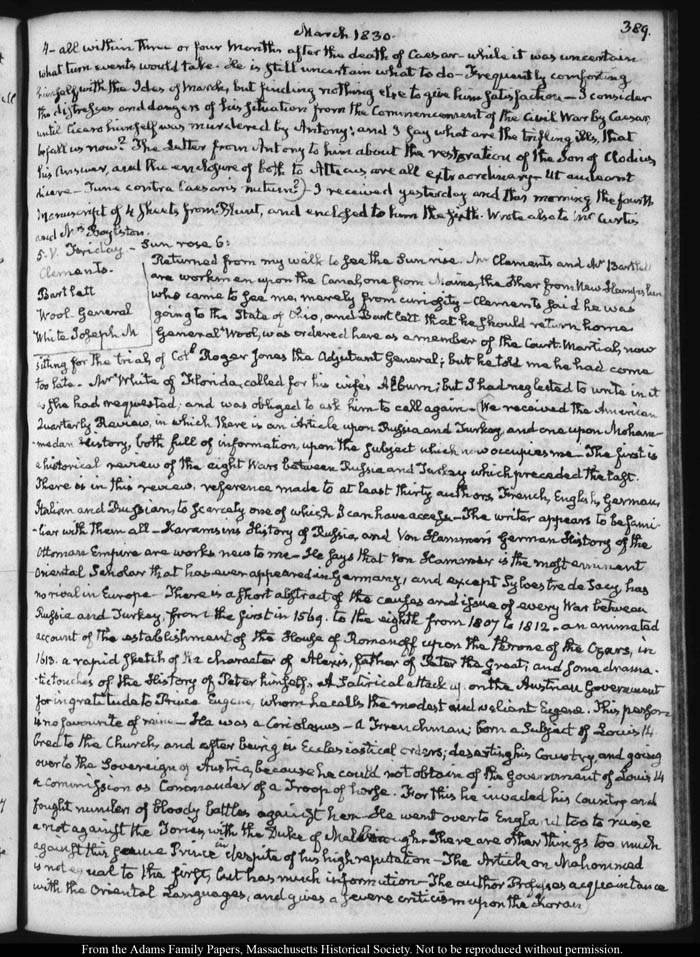 March 1830.
389.
4- all within three or four Months after the death of Caesar- while it was uncertain
what turn events would take. He is still uncertain what to do- Frequently comforting
himself with the Ides of March, but finding nothing else to give him satisfaction- I consider
the distresses and dangers of his situation from the Commencement of the Civil War by Caesar,
until Cicero himself was murdered by Antony; and I say what are the trifling ills, that
befall us now? The Letter from Antony to him about the restoration of the Son of Clodius,
his Answer, and the enclosure of both to Atticus, are all extraordinary-
- I received yesterday and this morning the fourth
Manuscript of 4 Sheets from Blunt, and enclosed to him the fifth. Wrote also to Mr Curtis
and Mr Boylston.
5. V. Friday- Sun rose 6:
Clements.
Bartlett
Wool General
White Joseph M
Returned from my walk to see the Sun rise. Mr Clements and Mr Bartlett
are workmen upon the Canal, one from Maine, the other from New Hampshire
who came to see me, merely from curiosity- Clements said he was
going to the State of Ohio, and Bartlett that he should return home.
General Wool, was ordered here as a member of the Court Martial, now
sitting for the trial, of Coll Roger Jones the Adjutant General; but he told me he had come
too late- Mr White of Florida, called for his wifes Album; but I had neglected to write in it
as she had requested, and was obliged to ask him to call again- We received the American
Quarterly Review, in which there is an Article upon Russia and Turkey, and one upon Moham-
-medan History, both full of information, upon the subject which now occupies me- The first is
a historical review of the eight Wars between Russia and Turkey which preceded the last.
There is in this review, reference made to at least thirty authors, French, English, German,
Italian and Russian, to scarcely one of which I can have access- The writer appears to be fami-
-liar with them all- Karamsin's History of Russia, and Von Hammer's German History of the
Ottoman Empire are works new to me- He says that Von Hammer is the most eminent
Oriental Scholar that has ever appeared in Germany, and except Sylvestre de Sacy, has
no rival in Europe- There is a short abstract of the causes and issue of every War between
Russia and Turkey, from the first in 1569. to the eighth from 1807 to 1812- an animated
account of the establishment of the House of Romanoff upon the throne of the Czars, in
1613. a rapid sketch of the character of Alexis, father of Peter the Great; and some drama-
-tic touches of the History of Peter himself. A satirical attack upon the Austrian Government
for ingratitude to Prince Eugene, whom he calls the modest and valiant Eugene. This person
is no favourite of mine- He was a Coriolanus- a Frenchman; born a subject of Louis 14
bred to the Church, and after being in Ecclesiastical orders; deserting his Country, and going
over to the Sovereign of Austria, because he could not obtain of the Government of Louis 14
a commission as Commander of a Troop of horse. For this he invaded his Country and
fought numbers of bloody battles against him. He went over to England too to raise
a riot against the Tories, with the Duke of Marlborough. There are other things too much
against this Prince in despite of his high reputation- The Article on Mahommed
is not equal to the first, but has much information- The author Professes acquaintance
with the Oriental Languages, and gives a severe criticism upon the Khoran
From the Adams Family Papers, Massachusetts Historical Society. Not to be reproduced without permission.